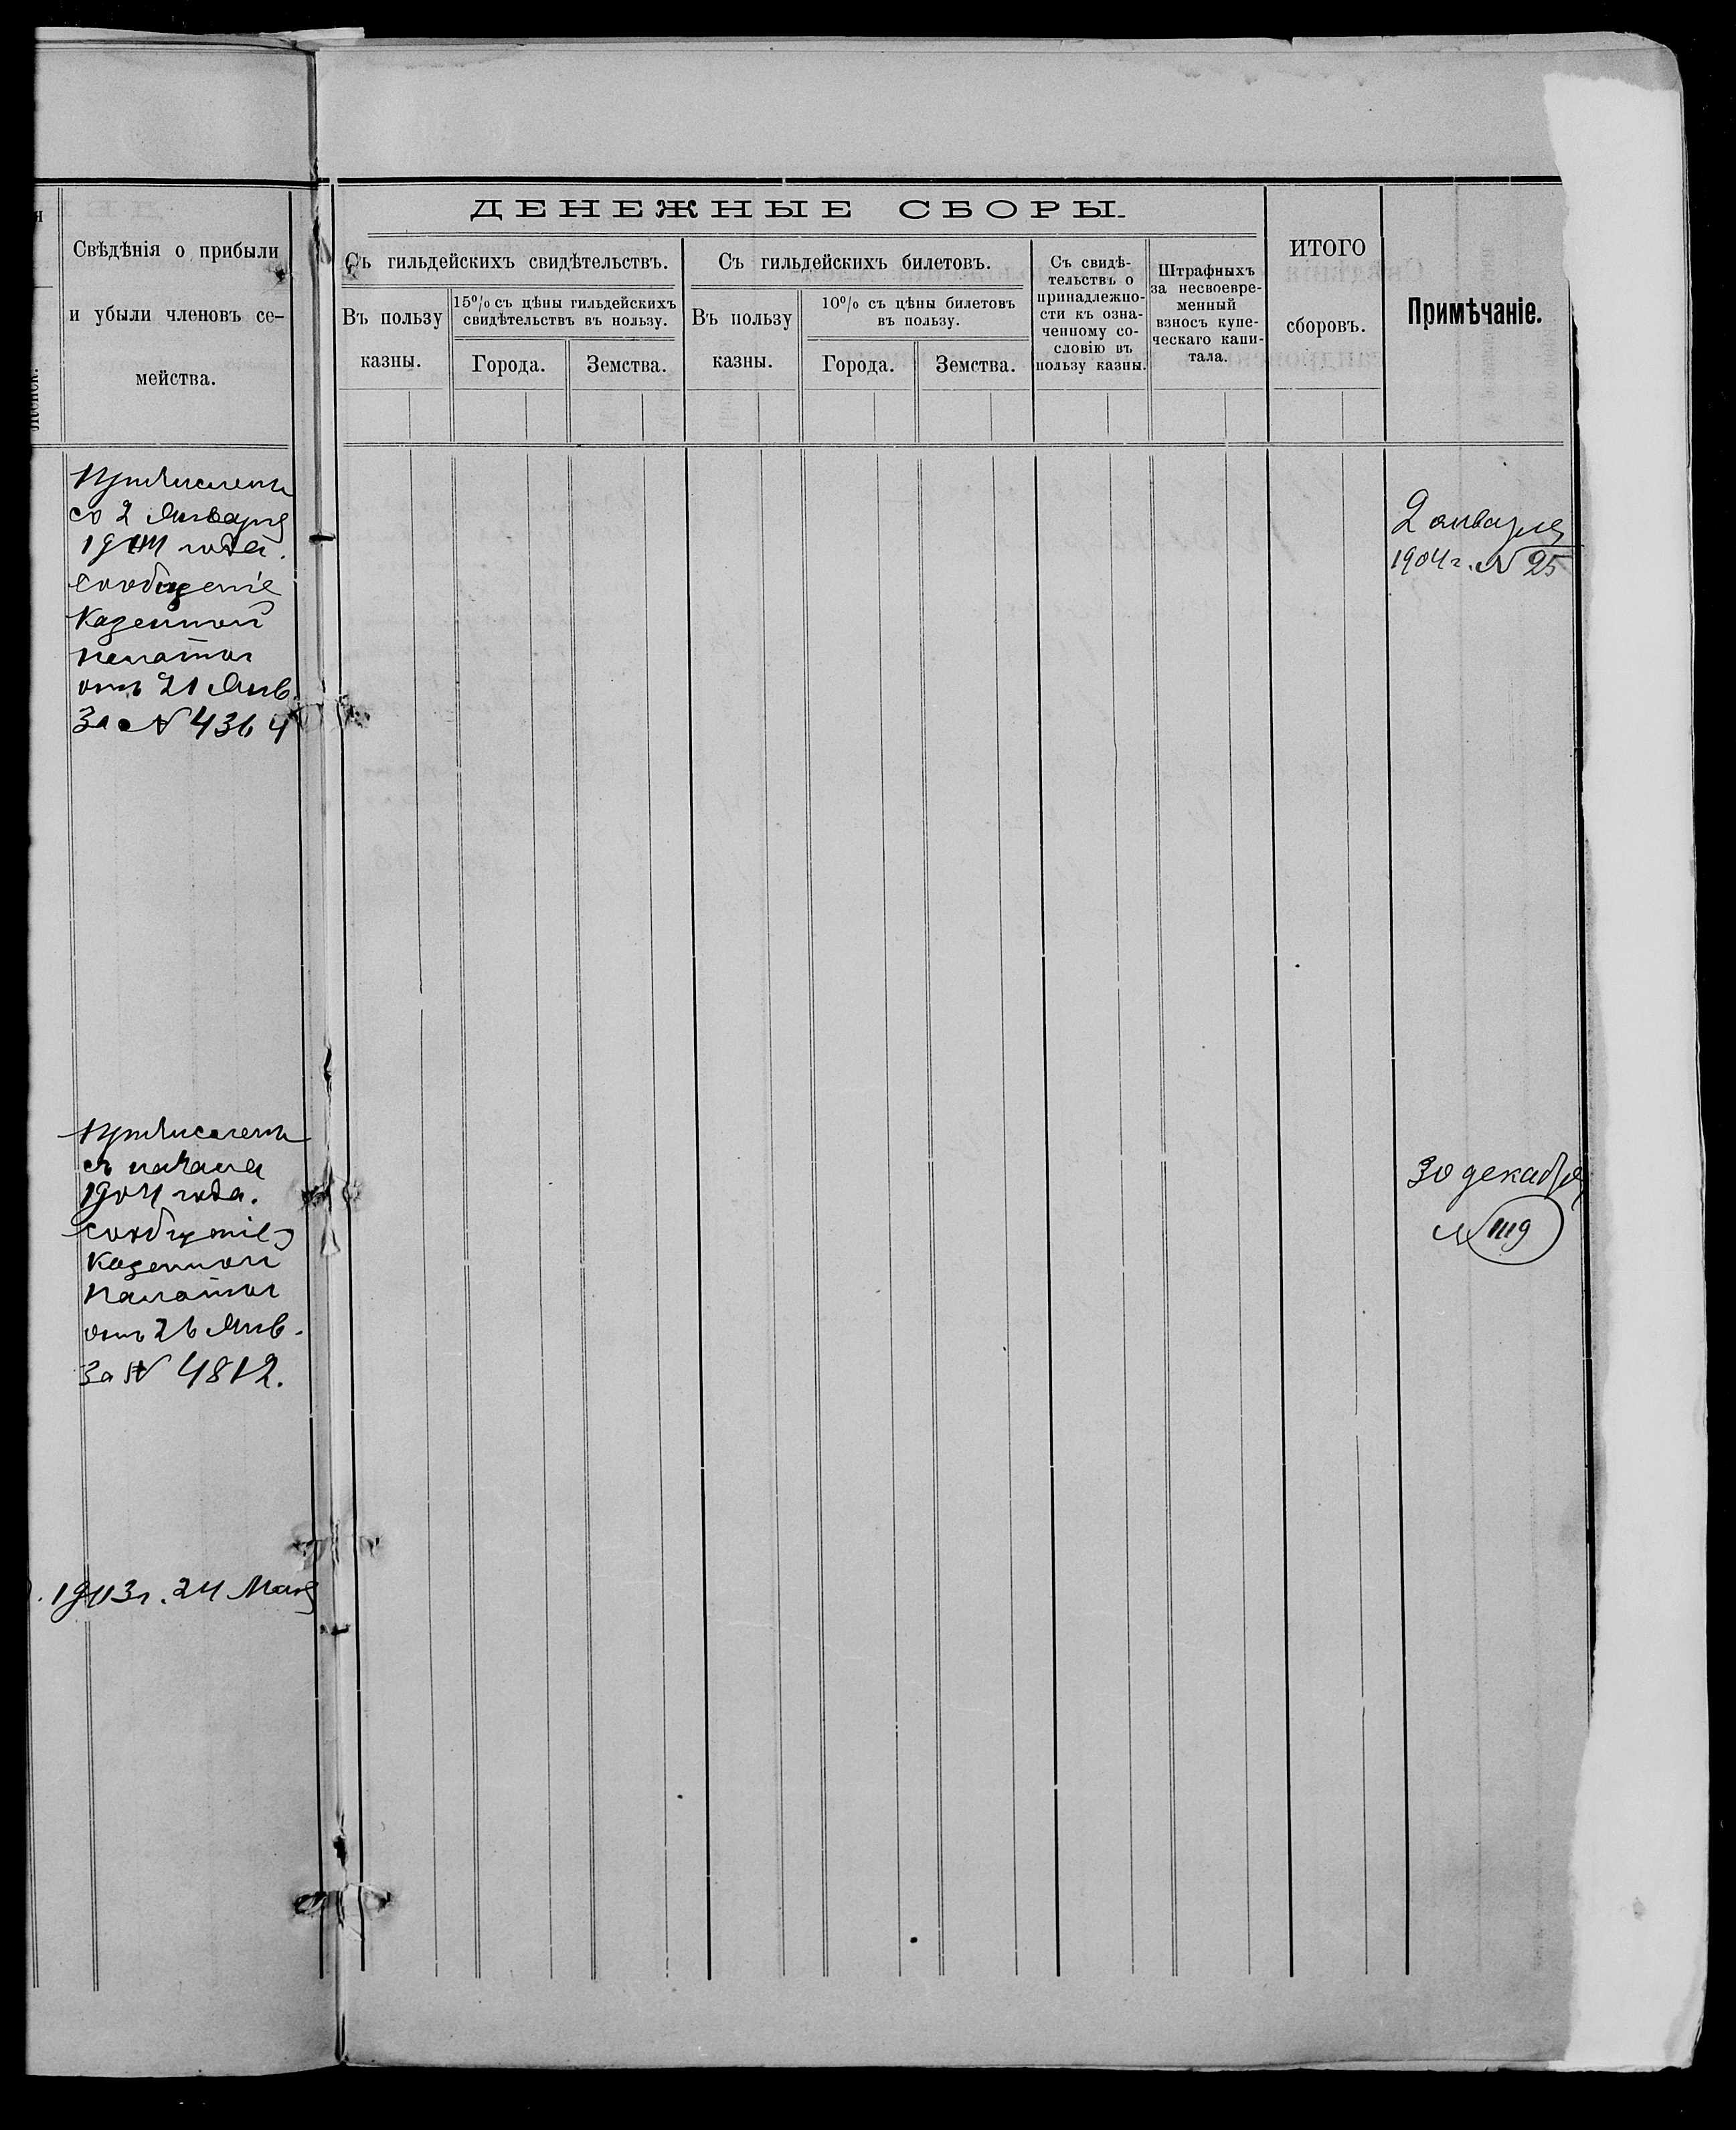 я
Женск.
Свѣдѣнія о прибыли
и убыли членовъ се-
мейства.
ДЕНЕЖНЫЕ СБОРЫ.
Съ гильдейскихъ свидѣтельствъ.
Въ пользу
казны.
15% съ цѣны гильдейскихъ
свидѣтельствъ въ пользу.
Города.
Земства.
Съ гильдейскихъ билетовъ.
Въ пользу
казны.
10% съ цѣны билетовъ
въ пользу.
Города.
Земства.
Съ свидѣ-
тельствъ о
принадлежно-
сти къ озна-
ченному со-
словію въ
пользу казны.
Штрафныхъ
за несвоевре-
менный
взносъ купе-
ческаго капи-
тала.
ИТОГО
сборовъ.
Примѣчаніе.
Причисленъ
со 2 Января
1904 года.
сообщеніе
Казенной
Палаты
отъ 21 Янв.
За № 4364
2 января
1904 г. № 25
Причисленъ
съ начала
1904 года.
сообщеніе
Казенной
Палаты
отъ 26 Янв.
За № 4812.
30 декабря
№ 1119
1903 г. 24 Мая